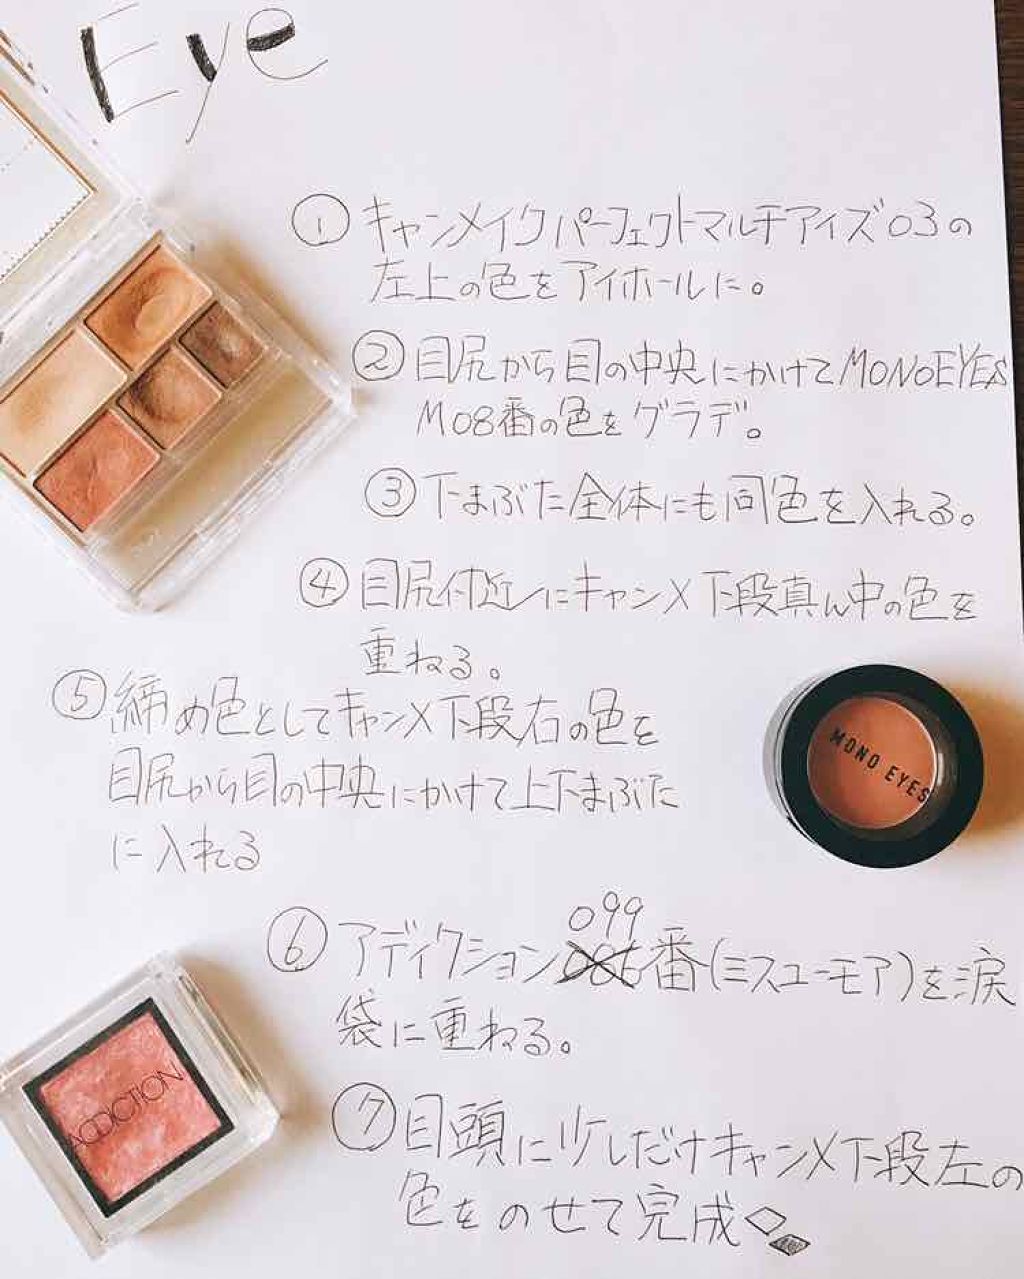 Eye
① キャンメイクパーフェクトマルチアイズ03の
左上の色をアイホールに。
② 目尻から目の中央にかけてMONOEYES
M08番の色をグラデ。
③ 下まぶた全体にも同色を入れる。
④ 目尻付近にキャンメ下段真ん中の色を
重ねる。
⑤ 締め色としてキャンメ下段右の色を
目尻から目の中央にかけて上下まぶた
に入れる
MONO EYES
099
⑥ アディクション番(ミスユーモア)を涙
袋に重ねる。
ADDICTION
⑦ 目頭に少しだけキャンメ下段左の
色をのせて完成